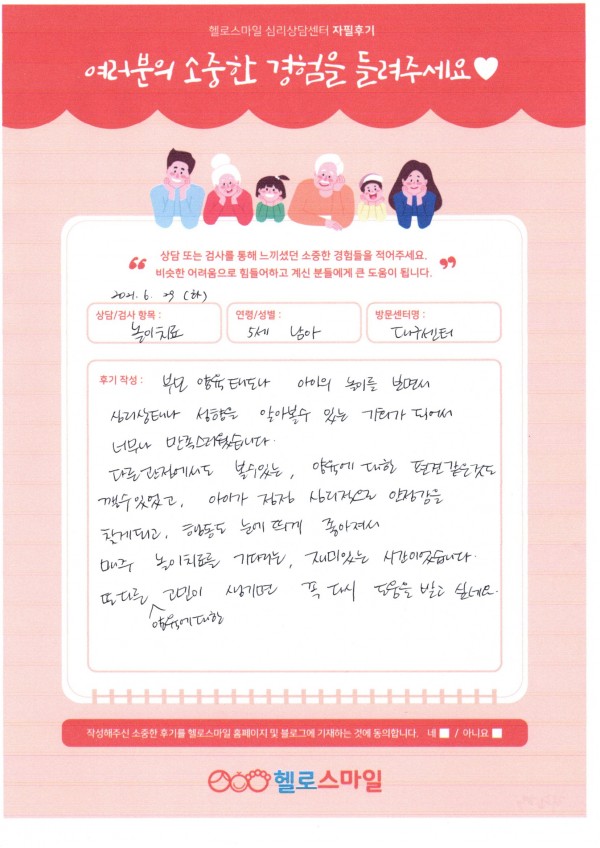 헬로스마일 심리상담센터 자필후기
여러분의 소중한 경험을 들려주세요♥
상담 또는 검사를 통해 느끼셨던 소중한 경험들을 적어주세요.
비슷한 어려움으로 힘들어하고 계신 분들에게 큰 도움이 됩니다.
2021. 6. 29 (화)
상담/검사 항목 : 놀이치료
연령/성별 : 5세 남아
방문센터명 : 대구센터
후기 작성 : 부모 양육태도나 아이의 놀이를 보면서
심리상태나 성향을 알아볼수 있는 기회가 되어서
너무나 만족스러웠습니다.
다른관점에서도 볼수있는, 양육에 대한 편견같은것도
깰수있었고, 아이가 점점 심리적으로 안정감을
찾게되고, 행동도 눈에 띄게 좋아져서
매주 놀이치료를 기다리는, 재미있는 시간이었습니다.
또다른 고민이 생기면 꼭 다시 도움을 받고 싶네요.
양육에대한
작성해주신 소중한 후기를 헬로스마일 홈페이지 및 블로그에 기재하는 것에 동의합니다. 네 / 아니요
헬로스마일